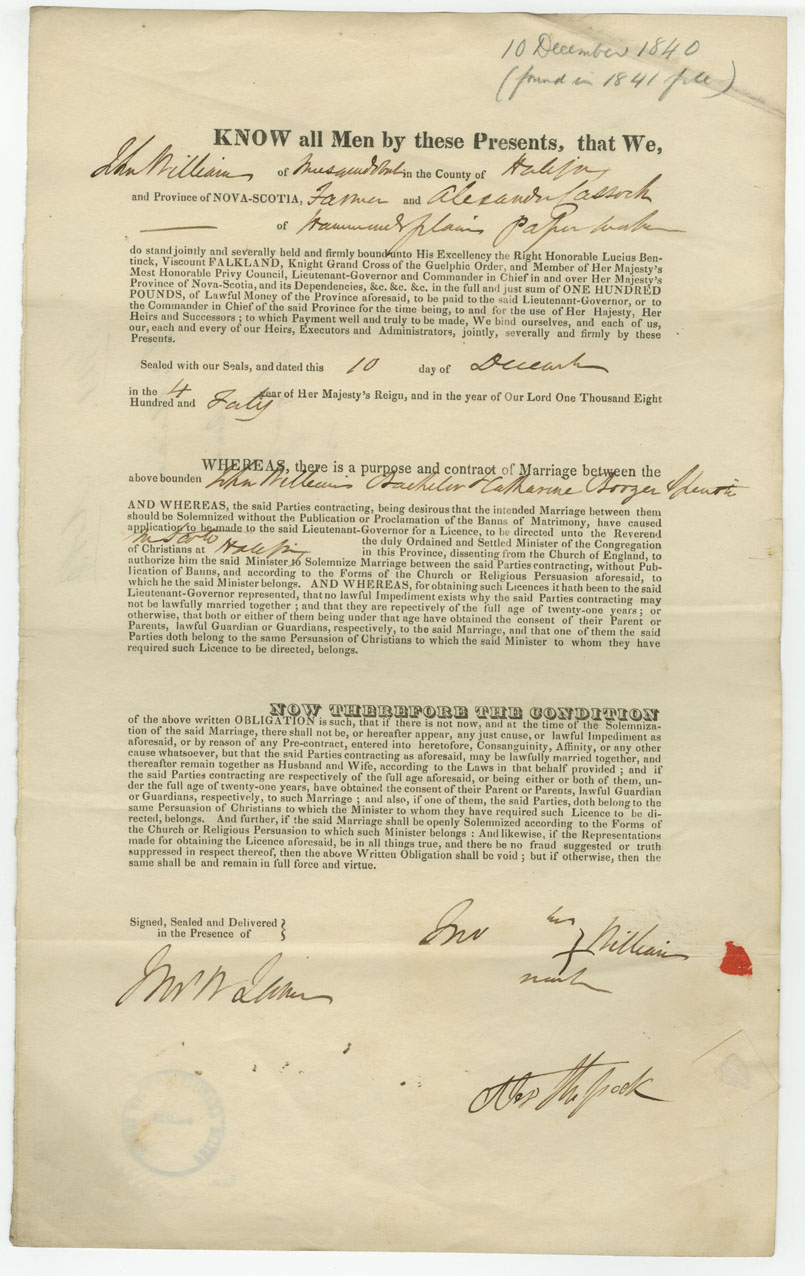 10 December 1840
(found in 1841 file)
KNOW all Men by these Presents, that We,
John Williams of Musquodoboit in the County of Halifax
and Province of NOVA-SCOTIA, Farmer and Alexander
of Hammonds plains Paper maker
do stand jointly and severally held and firmly bound unto His Excellency the Right Honorable Lucius Ben-
tinck, Viscount FALKLAND, Knight Grand Cross of the Guelphic Order, and Member of Her Majesty's
Most Honorable Privy Council, Lieutenant-Governor and Commander in Chief in and over Her Majesty's
Province of Nova-Scotia, and its Dependencies, &c. &c. &c. in the full and just sum of ONE HUNDRED
POUNDS, of Lawful Money of the Province aforesaid, to be paid to the said Lieutenant-Governor, or to
the Commander in Chief of the said Province for the time being, to and for the use of Her Majesty, Her
Heirs and Successors ; to which Payment well and truly to be made, We bind ourselves, and each of us,
our, each and every of our Heirs, Executors and Administrators, jointly, severally and firmly by these
Presents.
Sealed with our Seals, and dated this 10 day of December
in the 4 Year of Her Majesty's Reign, and in the year of Our Lord One Thousand Eight
Hundred and Forty
WHEREAS, there is a purpose and contract of Marriage between the
above bounden John Williams Bachelor & Catharine Boozer Spinster
AND WHEREAS, the said Parties contracting, being desirous that the intended Marriage between them
should be Solemnized without the Publication or Proclamation of the Banns of Matrimony, have caused
application to be made to the said Lieutenant-Governor for a Licence, to be directed unto the Reverend
the duly Ordained and Settled Minister of the Congregation
of Christians at Halifax in this Province, dissenting from the Church of England, to
authorize him the said Minister to Solemnize Marriage between the said Parties contracting, without Pub-
lication of Banns, and according to the Forms of the Church or Religious Persuasion aforesaid, to
which he the said Minister belongs. AND WHEREAS, for obtaining such Licences it hath been to the said
Lieutenant-Governor represented, that no lawful Impediment exists why the said Parties contracting may
not be lawfully married together ; and that they are repectively of the full age of twenty-one years ; or
otherwise, that both or either of them being under that age have obtained the consent of their Parent or
Parents, lawful Guardian or Guardians, respectively, to the said Marriage, and that one of them the said
Parties doth belong to the same Persuasion of Christians to which the said Minister to whom they have
required such Licence to be directed, belongs.
NOW THEREFORE THE CONDITION
of the above written OBLIGATION is such, that if there is not now, and at the time of the Solemniza-
tion of the said Marriage, there shall not be, or hereafter appear, any just cause, or lawful Impediment as
aforesaid, or by reason of any Pre-contract, entered into heretofore, Consanguinity, Affinity, or any other
cause whatsoever, but that the said Parties contracting as aforesaid, may be lawfully married together, and
thereafter remain together as Husband and Wife, according to the Laws in that behalf provided ; and if
the said Parties contracting are respectively of the full age aforesaid, or being either or both of them, un-
der the full age of twenty-one years, have obtained the consent of their Parent or Parents, lawful Guardian
or Guardians, respectively, to such Marriage ; and also, if one of them, the said Parties, doth belong to the
same Persuasion of Christians to which the Minister to whom they have required such Licence to be di-
rected, belongs. And further, if the said Marriage shall be openly Solemnized according to the Forms of
the Church or Religious Persuasion to which such Minister belongs : And likewise, if the Representations
made for obtaining the Licence aforesaid, be in all things true, and there be no fraud suggested or truth
suppressed in respect thereof, then the above Written Obligation shall be void ; but if otherwise, then the
same shall be and remain in full force and virtue.
Signed, Sealed and Delivered
in the Presence of
Jno his Williams
mark